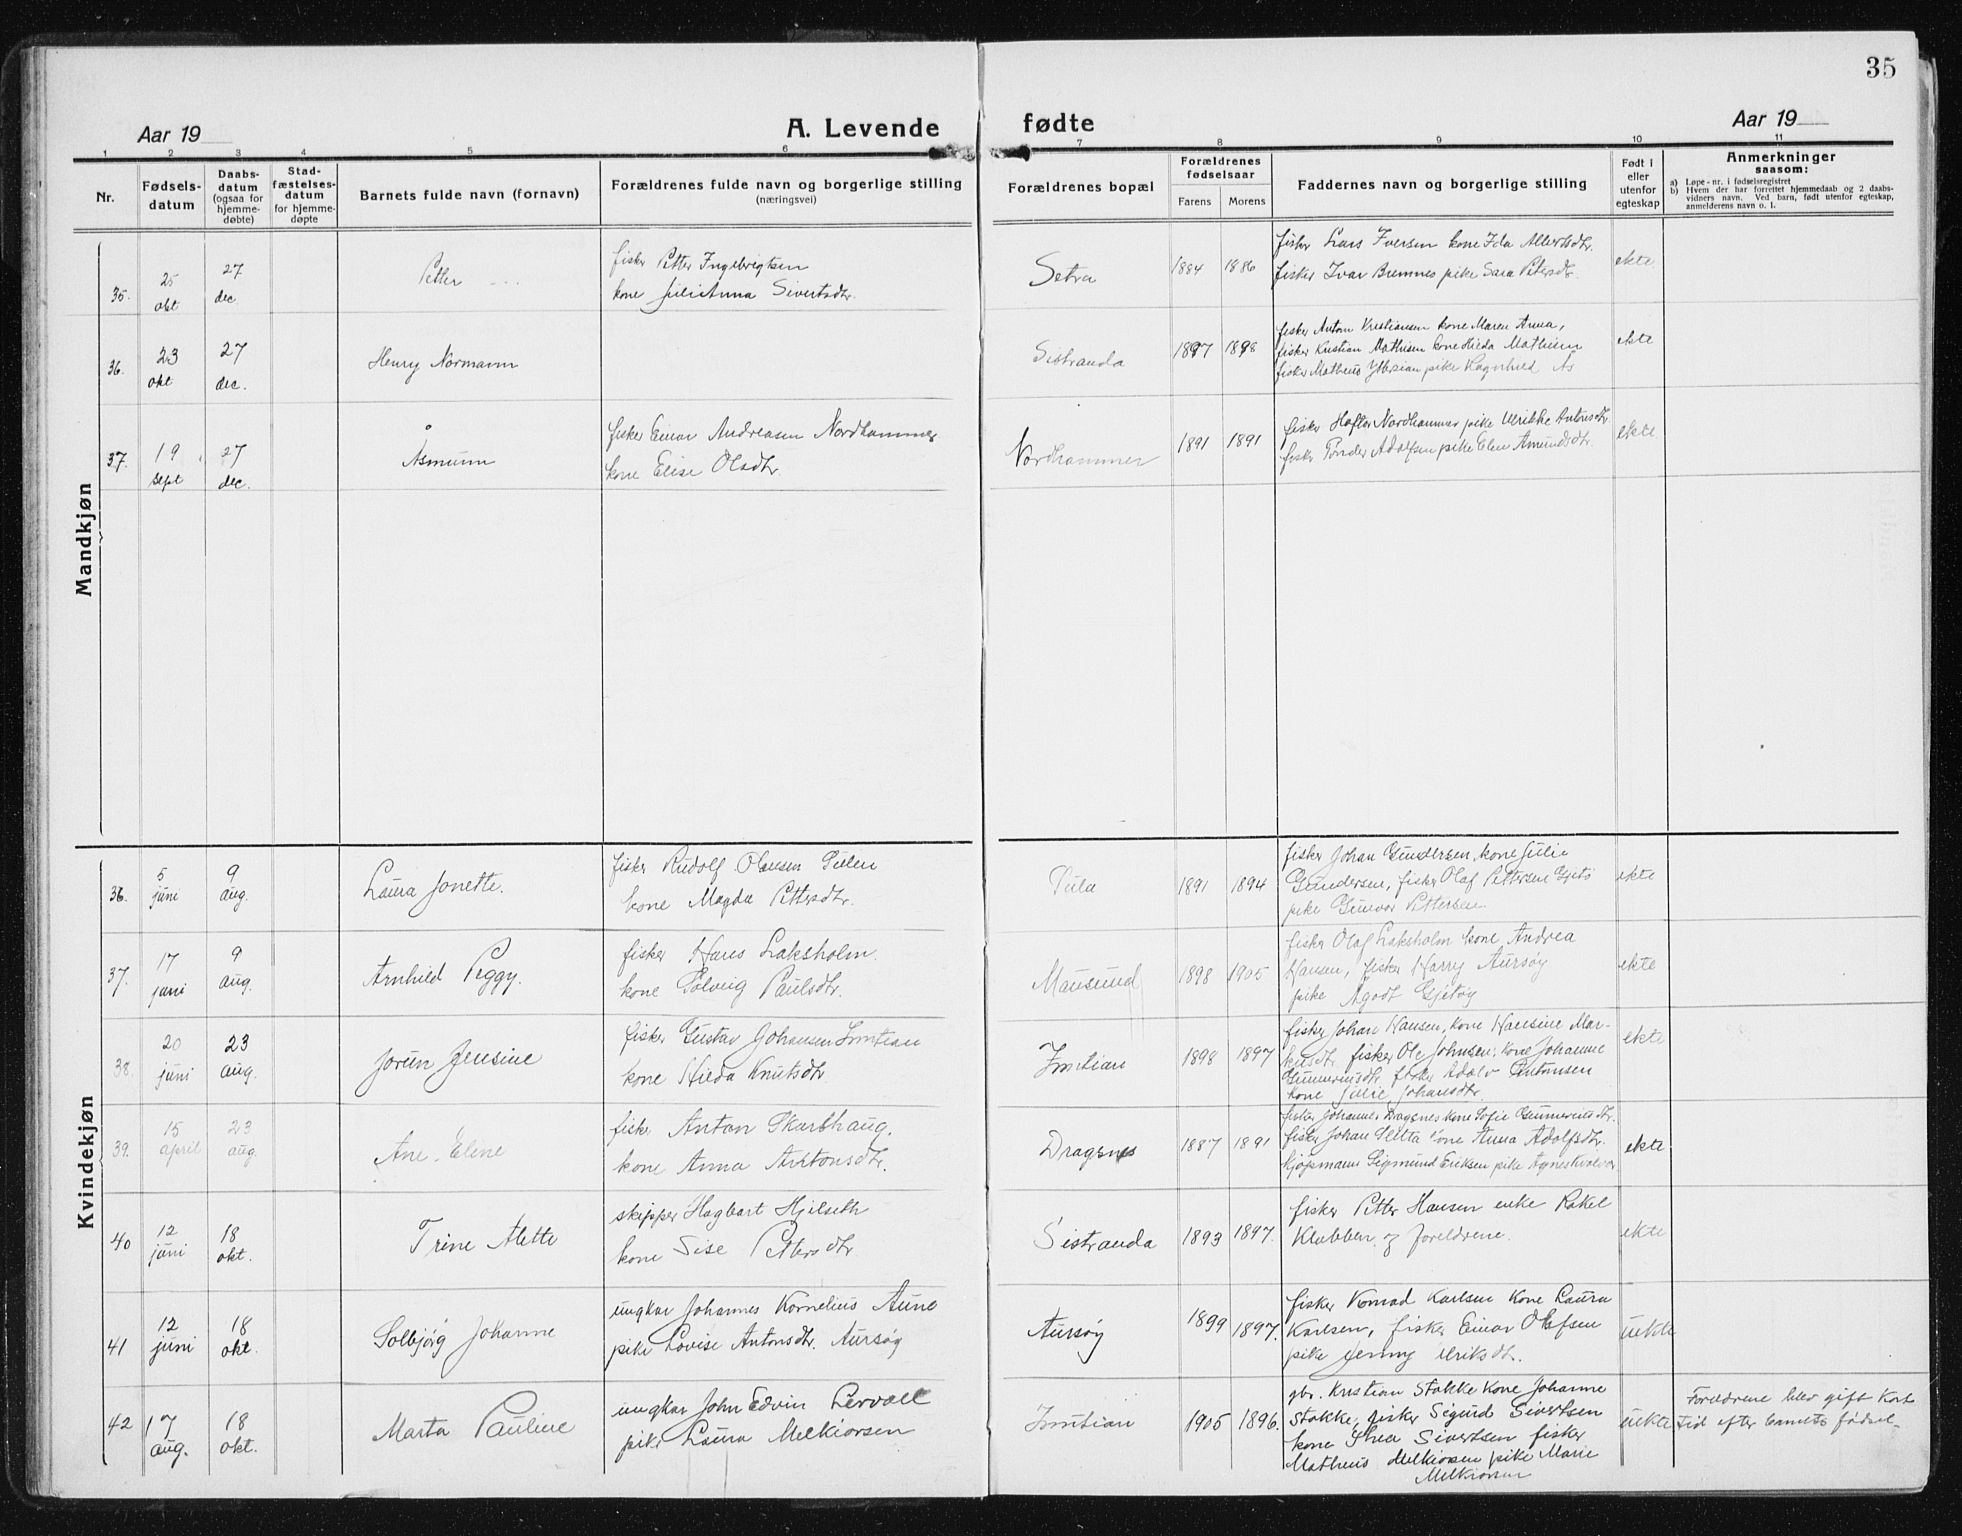 35
Aar 19
A. Levende
fødte
Aar 19
1 2 3 4 5 6 7 8 9 10 11
Nr.
Fødsels-
datum
Daabs-
datum
(ogsaa for
hjemme-
døbte)
Stad-
fæstelses-
datum
for hjemme-
døpte
Barnets fulde navn (fornavn)
Forældrenes fulde navn og borgerlige stilling
(næringsvei)
Forældrenes bopæl
Forældrenes
fødselsaar
Farens
Morens
Faddernes navn og borgerlige stilling
Født i
eller
utenfor
egteskap
Anmerkninger
saasom:
a) Løpe-nr. i fødselsregistret
b) Hvem der har forrettet hjemmedaab og 2 daabs-
vidners navn. Ved barn, født utenfor egteskap,
anmelderens navn o. l.
Mandkjøn
35.
25
okt
27
dec
Petter
fisker Petter Ingebrigtsen
kone Julianna Sivertsdtr.
Setra
1884
1886
fisker Lars Iversen kone Ida Albertsdtr.
fisker Ivar Bremnes pike Sara Petersdtr.
ekte
36.
23
okt
27
dec.
Henry Normann
Sistranda
1897
1898
fisker Anton Kristiansen kone Maren Anna,
fisker Kristian Mathisen kone Hilda Mathisen
fisker Matheus Ytterian pike Ragnhild Ås
ekte
37.
19
sept
27
dec.
Åsmunn
fisker Einar Andreasen Nordhammer
kone Elise Olsdtr.
Nordhammer
1891
1891
fisker Hafter Nordhammer pike Ulrikke Antonsdtr
fisker Peder Adolfsen pike Elen Amundsdtr.
ekte
Kvindekjøn
36.
5
juni
9
aug.
Laura Jonette.
fisker Rudolf Olausen Sulen
kone Magda Pettersdtr.
Sula
1891
1894
fisker Johan Gundersen, kone Julie
Gundersen, fisker Olaf Pettersen Gjetø
pike Gunvor Pettersen.
ekte
37.
17
juni
9
aug.
Arnhild Peggy.
fisker Hans Laksholm.
kone Solveig Paulsdtr.
Mausund
1898
1905
fisker Olaf Laksholm kone Andrea
Hansen, fisker Harry Aursøy
pike Agodt Gjetøy
ekte
38.
20
juni
23
aug.
Jorun Jensine
fisker Gustav Johansen Inntian
kone Hilda Knutsdtr.
Inntian
1898
1897
fisker Johan Hansen, kone Hansine Mar-
kusdtr. fisker Ole Johnsen, kone Johanne
Gunneriusdtr. fisker Adolv Antonsen
kone Julie Johansdtr.
ekte
39.
15
april
23
aug.
Ane Eline
fisker Anton Skarshaug.
kone Anna Antonsdtr.
Dragsnes
1887
1891
fisker Johannes Dragsnes kone Sofie Gunneriusdtr.
fisker Johan Sletta kone Anna Adolfsdtr.
kjøpmann Sigmund Eriksen pike Agnes Kvalvær
ekte
40
12
juni
18
okt.
Trine Alette
skipper Hagbart Hjelseth
kone Sise Pettersdtr
Sistranda
1893
1897.
fisker Petter Hansen enke Rakel
Klubben og foreldrene.
ekte
41
12
juni
18
okt.
Solbjørg Johanne
ungkar Johannes Kornelius Aune
pike Lovise Antonsdtr. Aursøy
Aursøy
1899
1897.
fisker Konrad Karlsen kone Laura
Karlsen, fisker Einar Olefsen
pike Jenny Ulriksdtr.
uekte
42
17
aug.
18
okt.
Marta Pauline
ungkar John Edvin Lervall
pike Laura Melkiorsen
Inntian
1905
1896.
gbr. Kristian Stokke kone Johanne
Stokke, fisker Sigurd Sivertsen
kone Thea Sivertsen fisker
Matheus Melkiorsen pike Marie
Melkiorsen
uekte
Foreldrene blev gift kort
tid efter barnets fødsel.